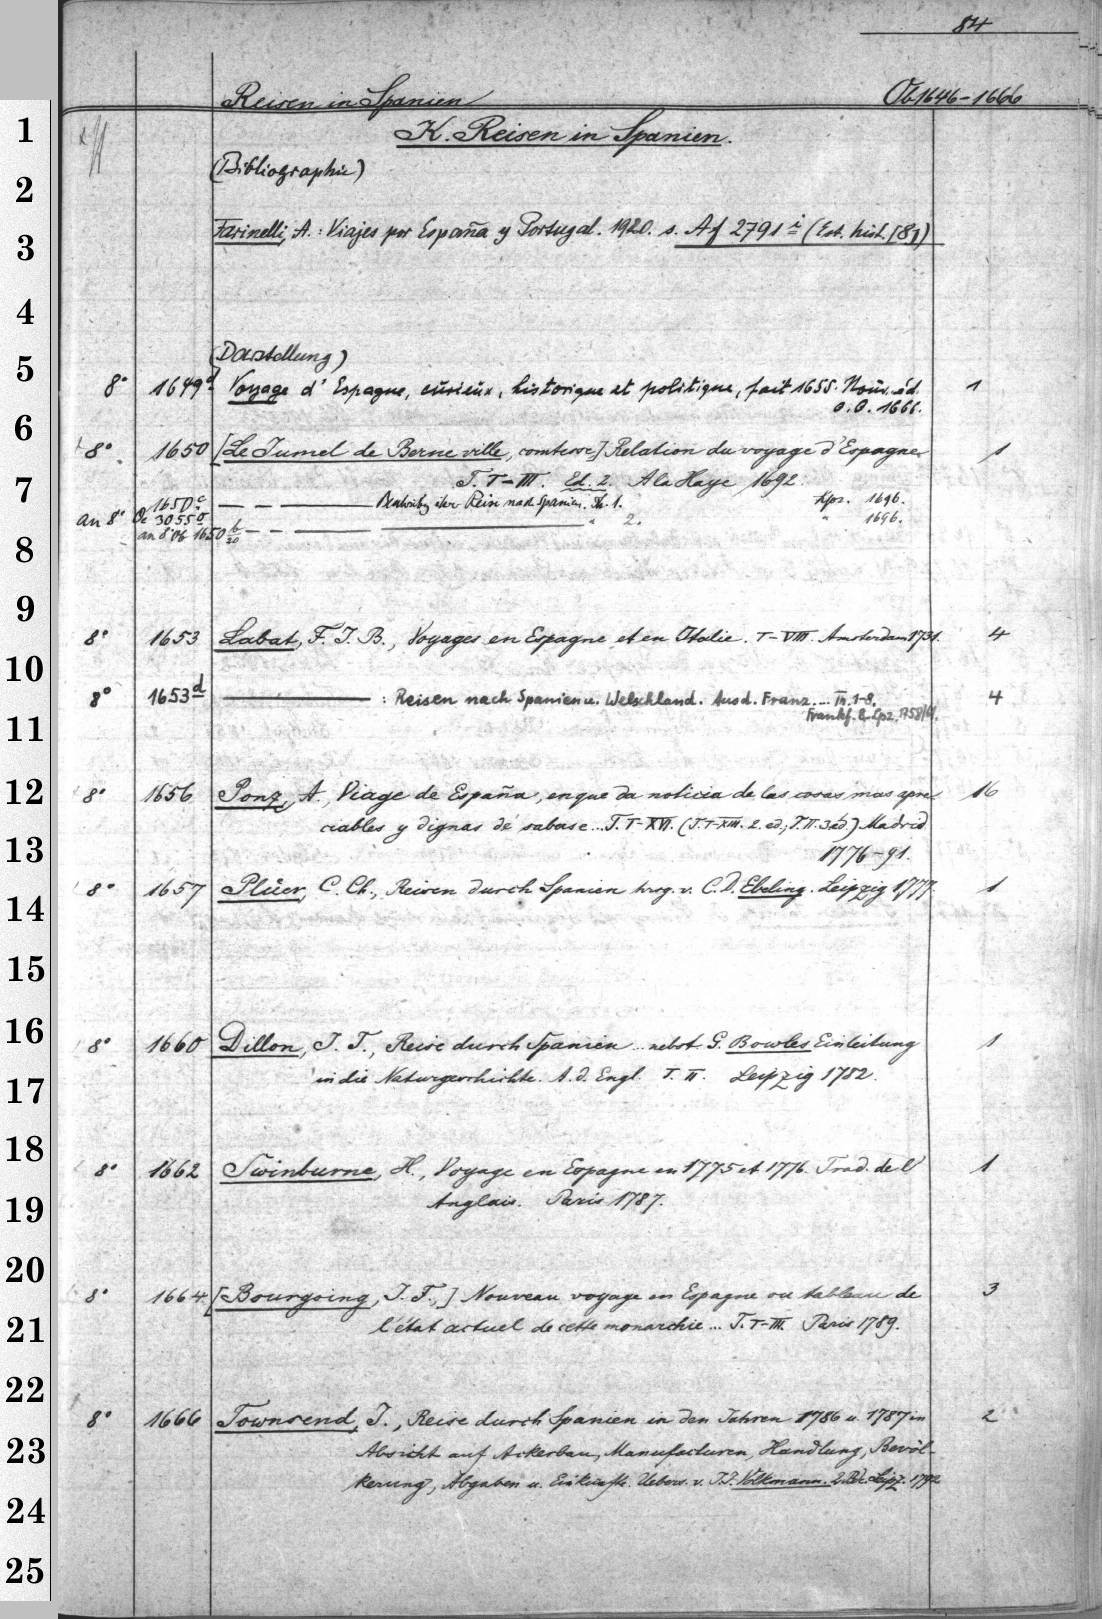 84
Reisen in Spanien Ob 1646-1666
K. Reisen in Spanien.
(Bibliographie)
Farinelli, A.: Viajes por España y Portugal. 1920. s. Af 2791 i (Est. hist. [8])
(Darstellung)
8° 1649d Voyage d'Espagne, curieux, historique et politique, fait 1655. Nouv. éd. 1
o.O. 1666.
8° 1650 [Le Jumel de Berneville, comtesse,] Relation du voyage d'Espagne 1
T. I-III. Ed. 2. A la Haye 1692.
1650c — — — Beschreibg ihrer Reise nach Spanien. Th. 1. Lpz. 1696.
an 8° Oc 3055
an 8° Ob 1650 b/20 — — — " 2. " 1696.
8° 1653 Labat, F. J. B., Voyages en Espagne et en Italie. I-VIII. Amsterdam 1731. 4
8° 1653d ——— : Reisen nach Spanien u. Welschland. Aus d. Franz. ... Th. 1-8. 4
Frankf. & Lpz. 1758/61.
8° 1656 Ponz, A., Viage de España, en que da noticia de las cosas mas apre- 16
ciables y dignas de saberse... T. I-XVI. (T. I-XIII. 2. ed.; T. II. 3. ed.) Madrid
1776-91.
8° 1657 Plüer, C. Ch., Reisen durch Spanien hrsg. v. C. D. Ebeling. Leipzig 1777. 1
8° 1660 Dillon, J. T., Reise durch Spanien ... nebst G. Bowles Einleitung 1
in die Naturgeschichte. A. d. Engl. T. II. Leipzig 1782.
8° 1662 Swinburne, H., Voyage en Espagne en 1775 et 1776. Trad. de l' 1
Anglais. Paris 1787.
8° 1664 [Bourgoing, J. F.,] Nouveau voyage en Espagne ou tableau de 3
l'état actuel de cette monarchie... T. I-III. Paris 1789.
8° 1666 Townsend, J., Reise durch Spanien in den Jahren 1786 u. 1787 in 2
Absicht auf Ackerbau, Manufacturen, Handlung, Bevöl-
kerung, Abgaben u. Einkünfte. Uebers. v. J. J. Volkmann. 2 Bde. Leipz. 1792
1
2
3
4
5
6
7
8
9
10
11
12
13
14
15
16
17
18
19
20
21
22
23
24
25